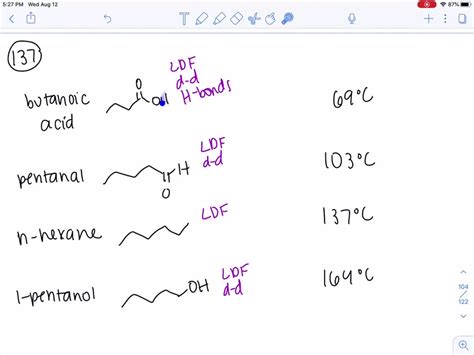 5:27 PM Wed Aug 12
87%
137
butanoic acid
O
OH
LDF
d-d
H-bonds
69°C
pentanal
H
O
LDF
d-d
103°C
n-hexane
LDF
137°C
1-pentanol
OH
LDF
d-d
164°C
104
122